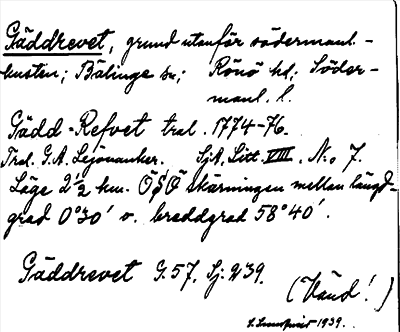 Gäddrevet, grund utanför södermanl.-
kusten; Bälinge sn; Rönö hd; Söder-
manl. l.
Gädd-Refvet tral. 1774-76.
Tral. G.A. Lejonancker. SjA. Litt. VIII. N:o 7.
Läge 2 1/2 km. Ö§Ö skärningen mellan längd-
grad 0°30' v. breddgrad 58°40'.
Gäddrevet G. 57. Sj:
(Vänd!)
1939.